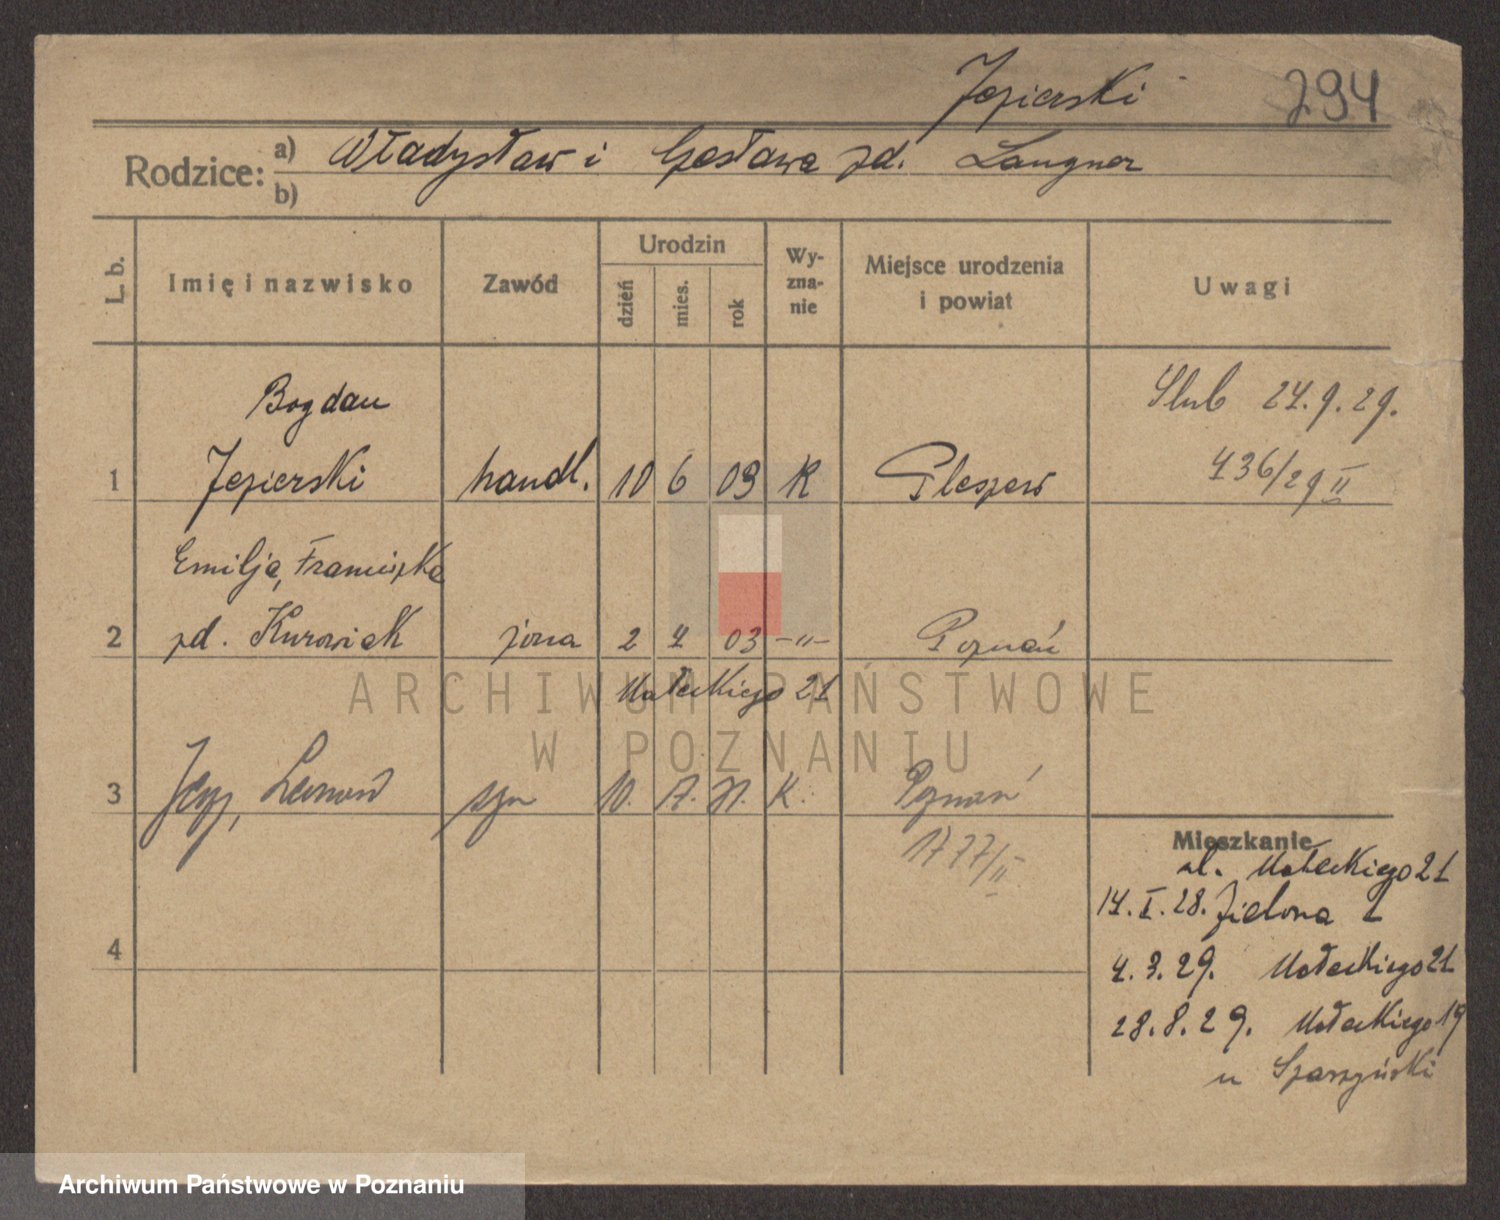 Jezierski 294
Rodzice: a) Władysław i Czesława zd. Langner
b)
L. b. Imię i nazwisko Zawód Urodzin dzień mies. rok Wy-zna-nie Miejsce urodzenia i powiat Uwagi
Bogdan
Ślub 24.9.29.
1 Jezierski handl. 10 6 03 K Pleszew
436/29 II
Emilja, Franciszka
2 zd. Kurowiak żona 2 4 03 -"- Poznań
Małeckiego 21
3 Jerzy, syn 10. K. Poznań
1777/II
4
Mieszkanie
ul. Małeckiego 21
14.I.28. Zielona 2
4.3.29. Małeckiego 21
28.8.29. Małeckiego 19
u Szaszyński
ARCHIWUM PAŃSTWOWE
W POZNANIU
Archiwum Państwowe w Poznaniu